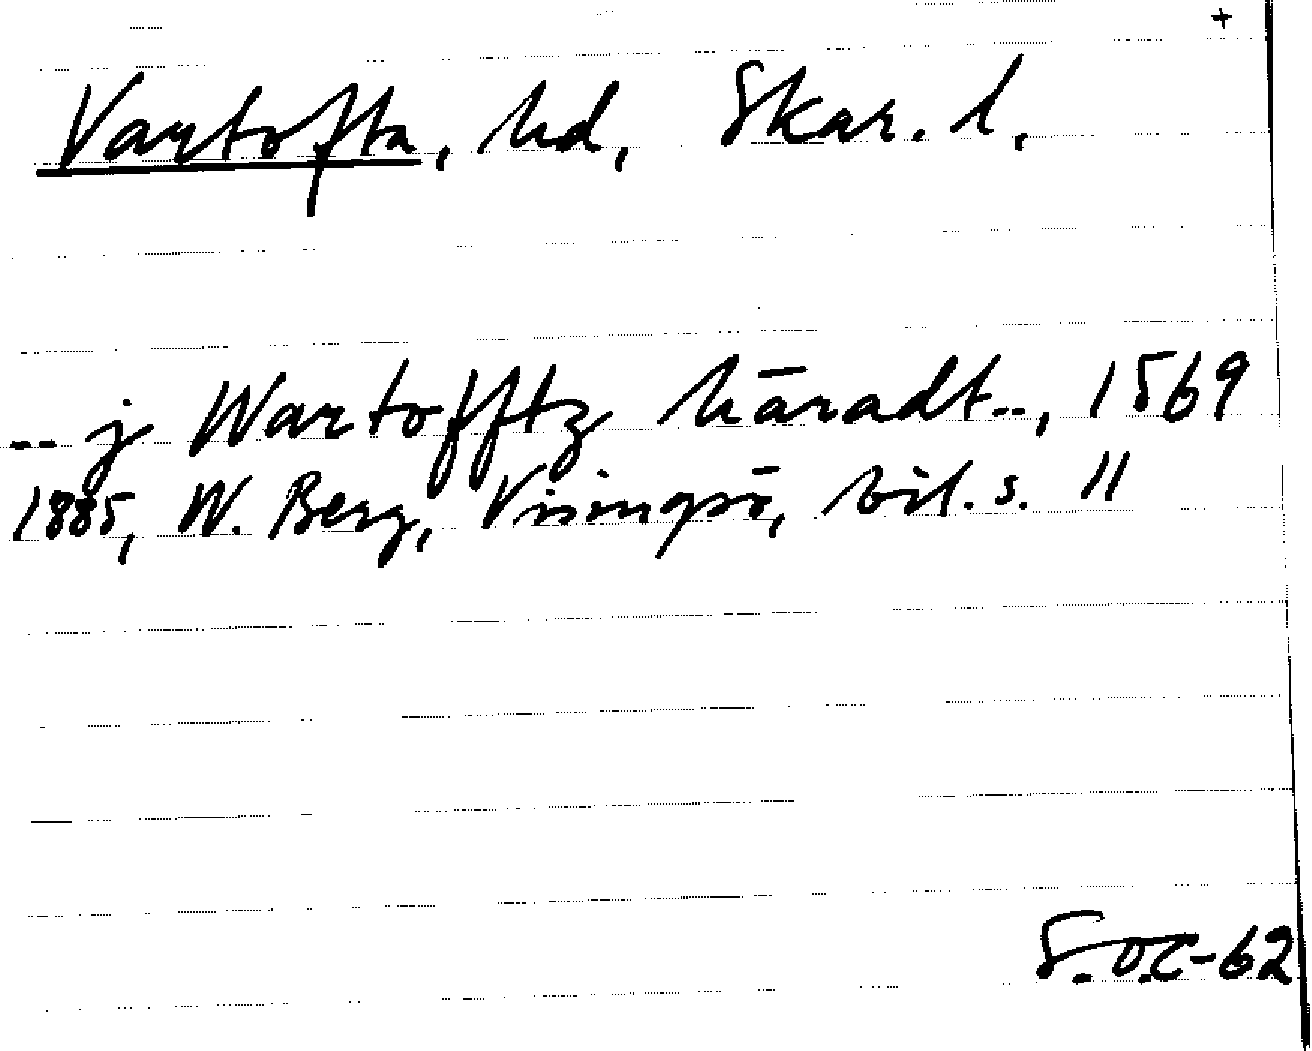 +
Vartofta, hd, Skar. l.
-- j Wartofftz häradt--, 1569
1885, W. Berg, Visingsö, bil. s. 11
S.O.C-62